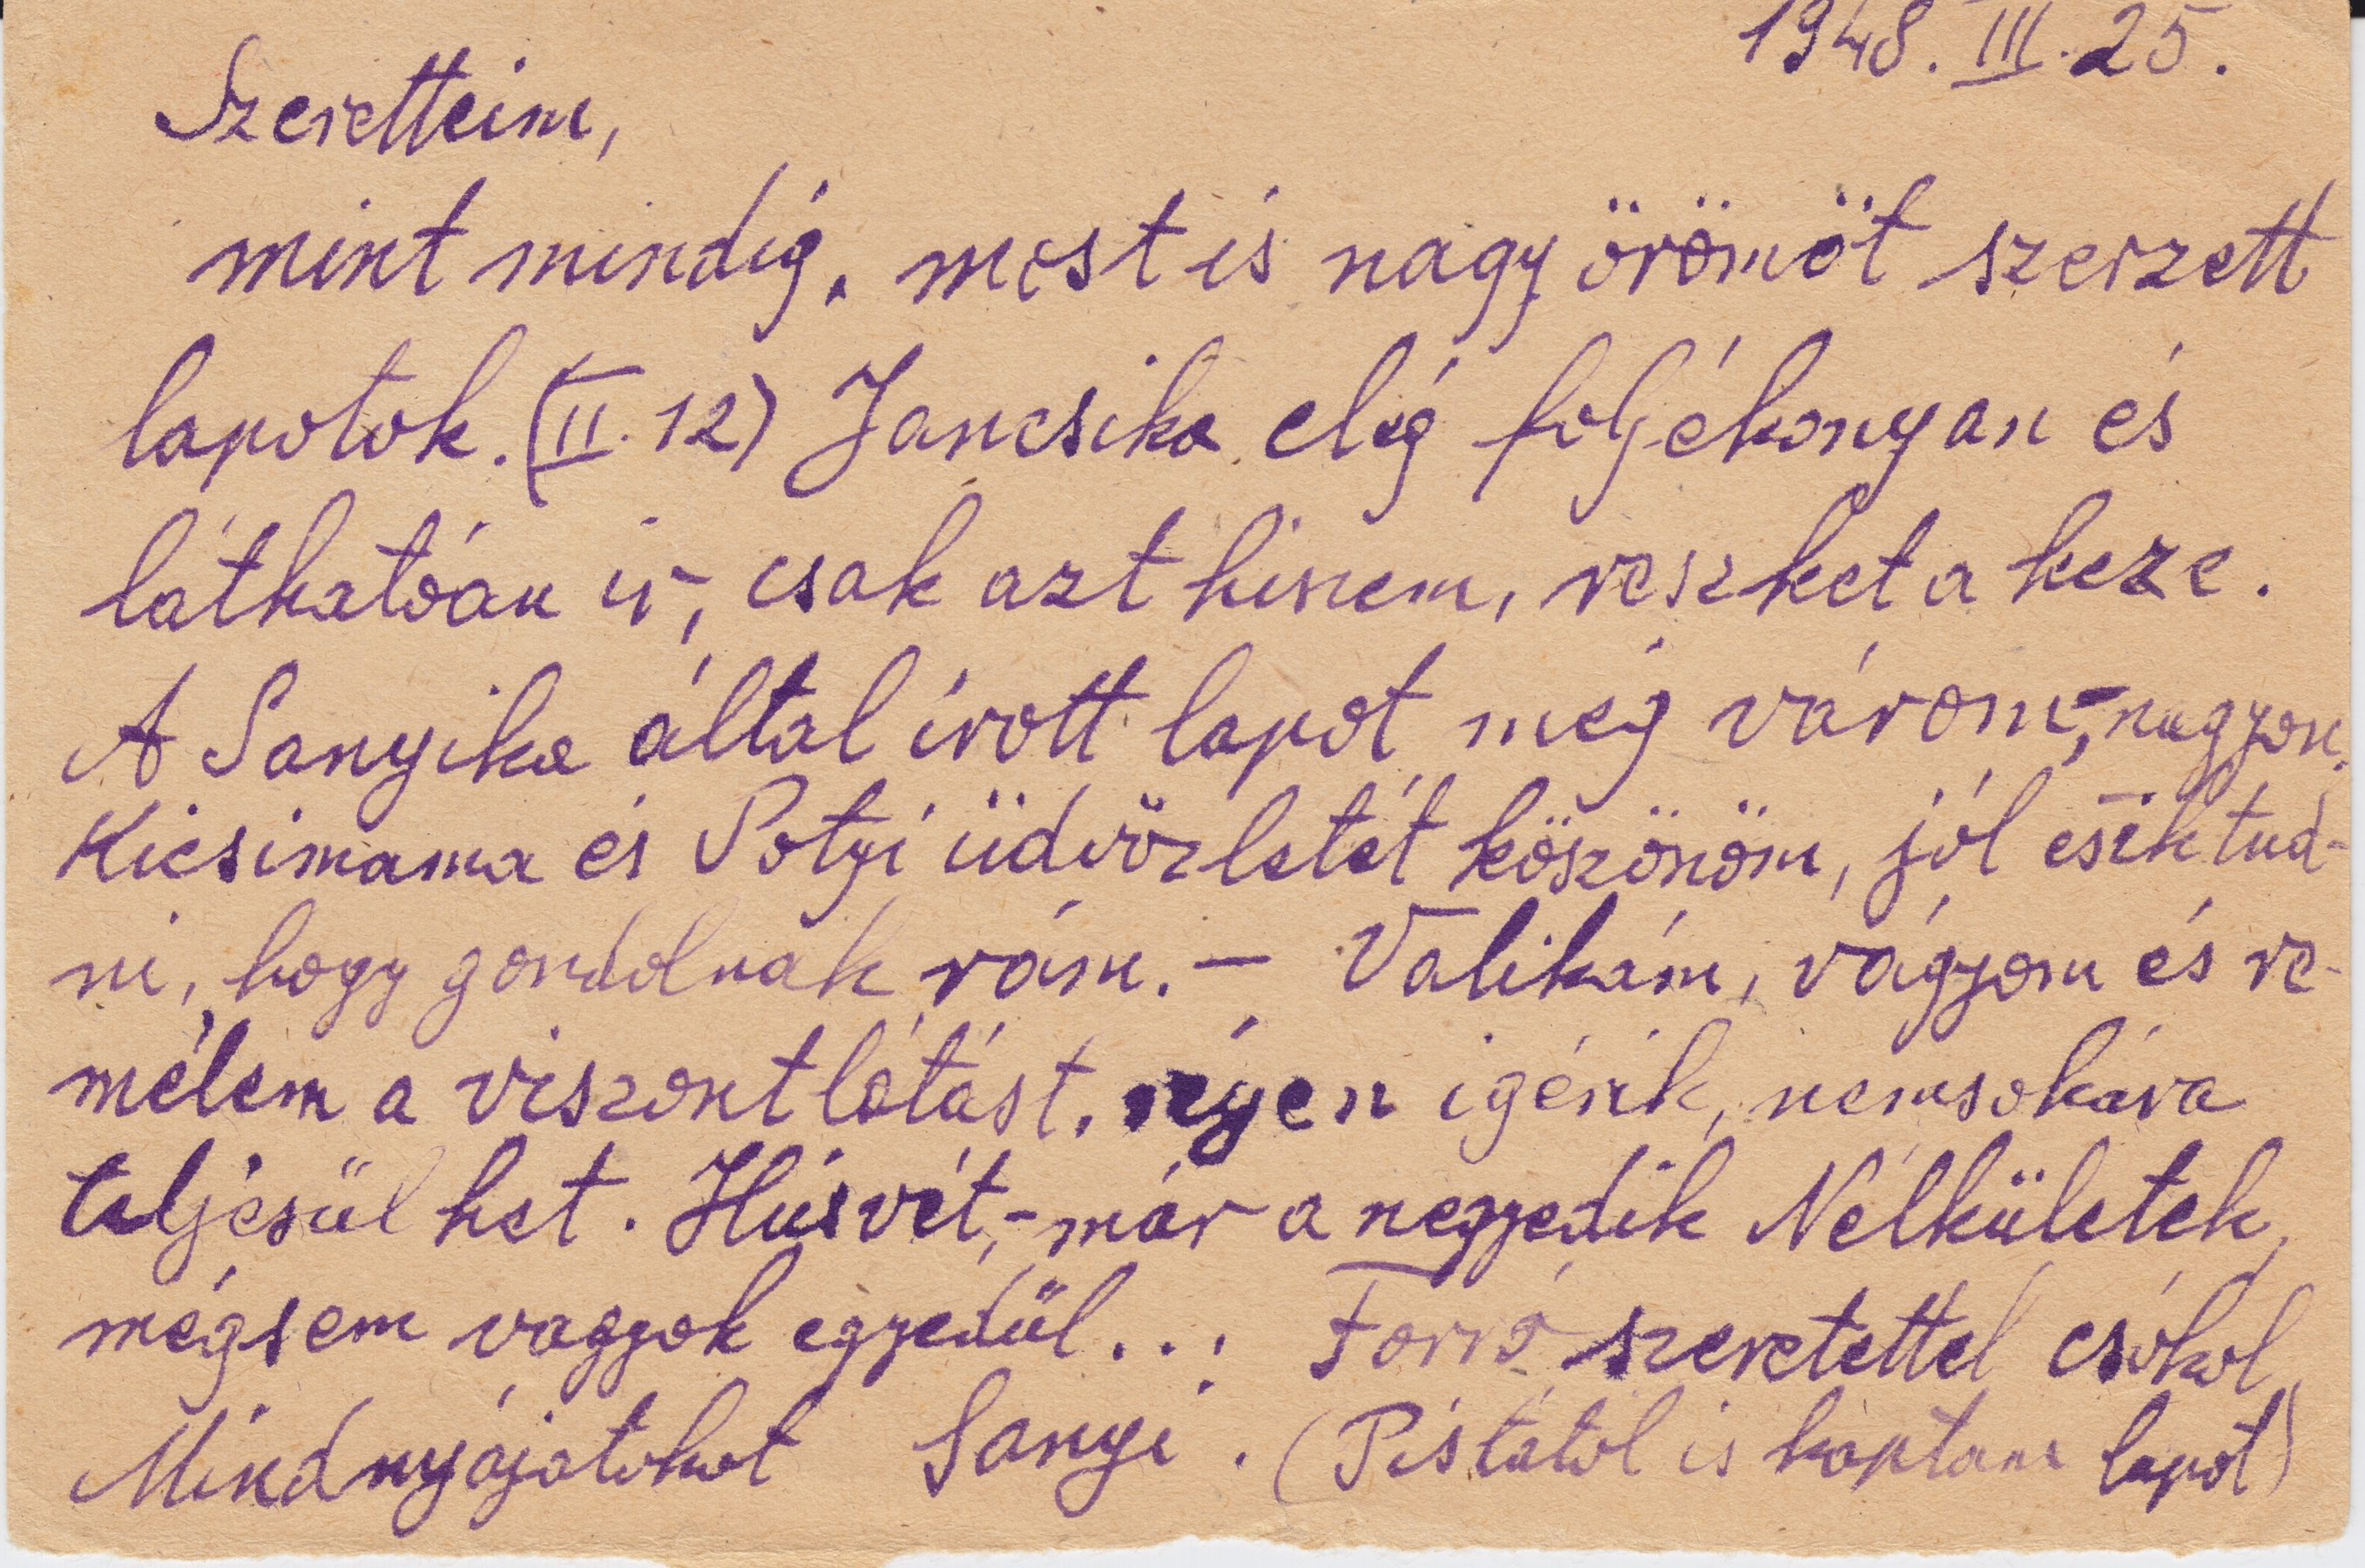 1948. III. 25.
Szeretteim,
mint mindig, most is nagy örömöt szerzett
lapotok. (II. 12) Jancsika elég folyékonyan és
láthatóan ír, csak azt hiszem, reszket a keze.
A Sanyika által írott lapot még várom,- nagyon.
Kicsimama és Potyi üdvözletét köszönöm, jól esik tud-
ni, hogy gondolnak rám. — Valikám, vágyom és re-
mélem a viszontlátást, igérik, nemsokára
teljesülhet. Húsvét,- már a negyedik Nélkületek,
mégsem vagyok egyedül... Forró szeretettel csókol
Mindnyájatokat Sanyi. (Pistától is kaptam lapot)